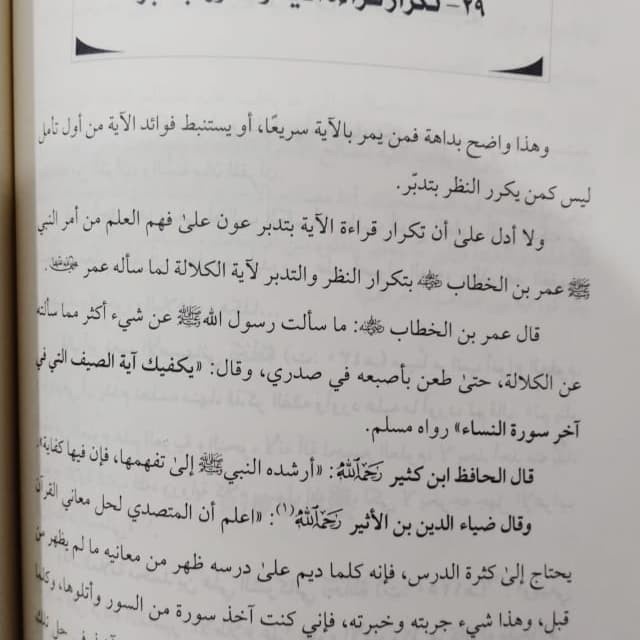 ٣٩- تكرار قراءة
وهذا واضح بداهة فمن يمر بالآية سريعًا، أو يستنبط فوائد الآية من أول تأمل
ليس كمن يكرر النظر بتدبّر.
ولا أدل علىٰ أن تكرار قراءة الآية بتدبر عون علىٰ فهم العلم من أمر النبي
ﷺ عمر بن الخطاب رضي الله عنه بتكرار النظر والتدبر لآية الكلالة لما سأله عمر رضي الله عنه.
قال عمر بن الخطاب رضي الله عنه: ما سألت رسول الله ﷺ عن شيء أكثر مما سألته
عن الكلالة، حتىٰ طعن بأصبعه في صدري، وقال: «يكفيك آية الصيف التي في
آخر سورة النساء» رواه مسلم.
قال الحافظ ابن كثير رحمه الله: «أرشده النبي ﷺ إلىٰ تفهمها، فإن فيها كفاية».
وقال ضياء الدين بن الأثير رحمه الله(١): «اعلم أن المتصدي لحل معاني القرآن
يحتاج إلىٰ كثرة الدرس، فإنه كلما ديم علىٰ درسه ظهر من معانيه ما لم يظهر من
قبل، وهذا شيء جربته وخبرته، فإني كنت آخذ سورة من السور وأتلوها، وكلما